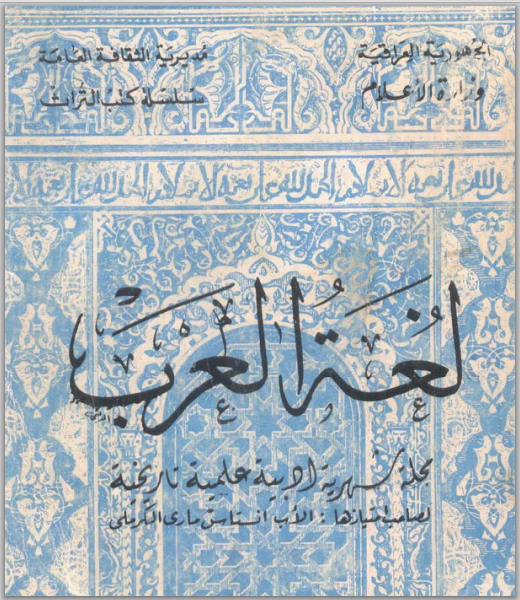 الجمهورية العراقية
وزارة الأعلام
مديرية الثقافة العامة
سلسلة كتب التراث
لُغَةُ العَرَبْ
مجلة شهرية ادبية علمية تاريخية
لصاحب امتيازها : الأب انستاس مارى الكرملى